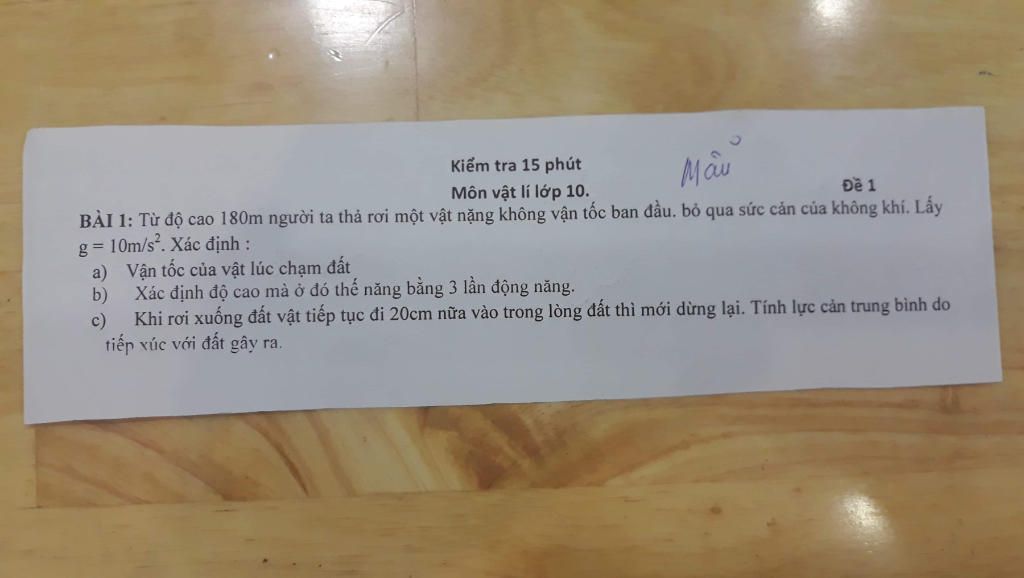 Kiểm tra 15 phút
Mẩu
Môn vật lí lớp 10.
Đề 1
BÀI 1: Từ độ cao 180m người ta thả rơi một vật nặng không vận tốc ban đầu. bỏ qua sức cản của không khí. Lấy
g = 10m/s². Xác định :
a) Vận tốc của vật lúc chạm đất
b) Xác định độ cao mà ở đó thế năng bằng 3 lần động năng.
c) Khi rơi xuống đất vật tiếp tục đi 20cm nữa vào trong lòng đất thì mới dừng lại. Tính lực cản trung bình do
tiếp xúc với đất gây ra.